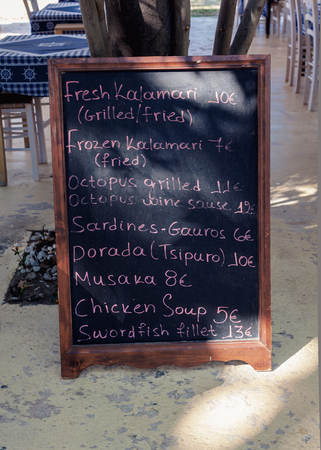 Fresh Kalamari 10€
(Grilled/fried)
Frozen Kalamari 7€
(fried)
Octopus grilled 11€
Octopus
Sardines-Gauros 6€
Dorada (Tsipuro) 10€
Musaka 8€
Chicken Soup 5€
Swordfish fillet 13€